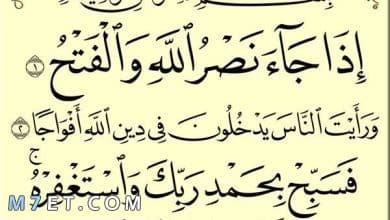 إِذَا جَآءَ نَصْرُ ٱللَّهِ وَٱلْفَتْحُ ١
وَرَأَيْتَ ٱلنَّاسَ يَدْخُلُونَ فِى دِينِ ٱللَّهِ أَفْوَاجًا ٢
فَسَبِّحْ بِحَمْدِ رَبِّكَ وَٱسْتَغْفِرْهُ ۚ
M7ET.COM